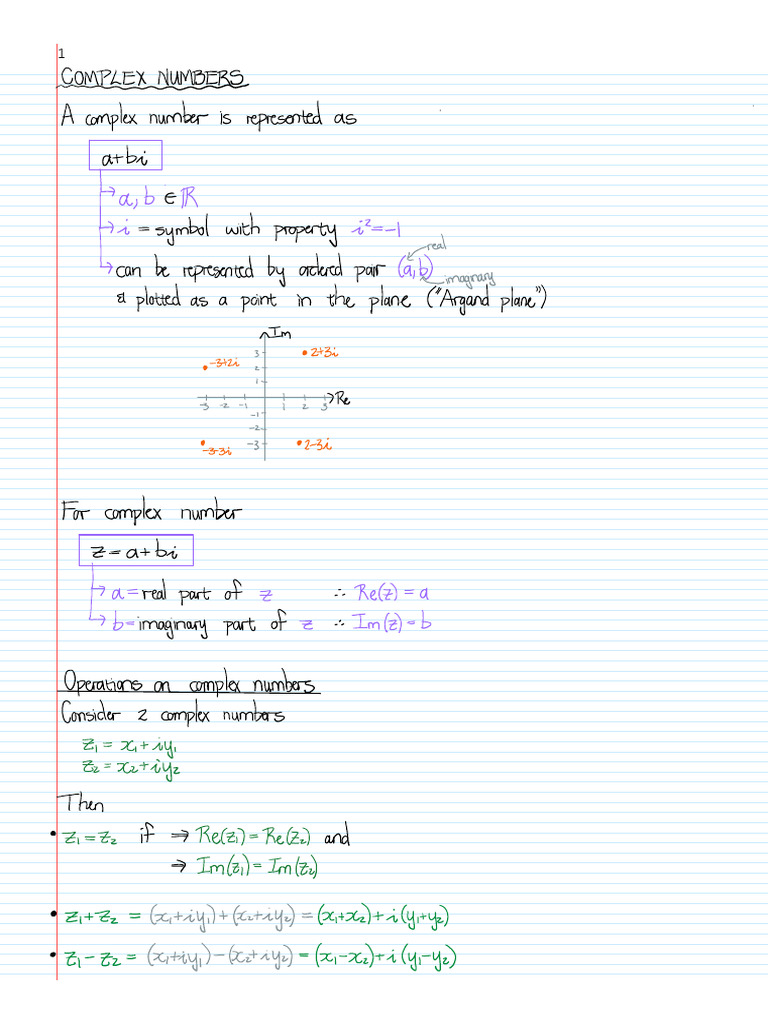 1
COMPLEX NUMBERS
A complex number is represented as
a+bi
→ a, b ∈ ℝ
→ i = symbol with property i²=-1
real
→ can be represented by ordered pair (a,b)
imaginary
& plotted as a point in the plane ("Argand plane")
Im
3 2+3i
-3+2i 2
1
-3 -2 -1 1 2 3 Re
-1
-2
-3-3i -3 2-3i
For complex number
z = a+bi
→ a = real part of z ∴ Re(z) = a
→ b = imaginary part of z ∴ Im(z) = b
Operations on complex numbers
Consider 2 complex numbers
z₁ = x₁ + iy₁
z₂ = x₂ + iy₂
Then
• z₁ = z₂ if ⇒ Re(z₁) = Re(z₂) and
⇒ Im(z₁) = Im(z₂)
• z₁ + z₂ = (x₁+iy₁)+(x₂+iy₂) = (x₁+x₂)+i(y₁+y₂)
• z₁ - z₂ = (x₁+iy₁)-(x₂+iy₂) = (x₁-x₂)+i(y₁-y₂)